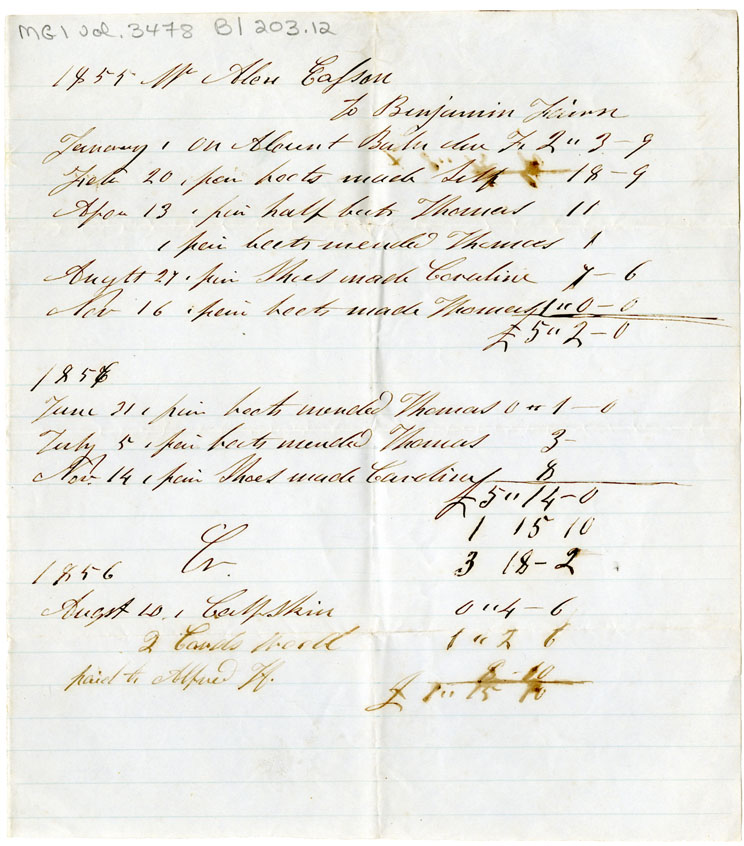 MG1 vol. 3478 B1 203.12
1855 Mr Alex Easson
To Benjamin
January 1 on Acount due 2 " 3 - 9
Feb 20 1 pair boots made Self 18 - 9
13 1 pair half boots Thomas 11
1 pair boots mended Thomas 1
Augtt 27 1 pair Shoes made Caroline 7 - 6
Nov 16 1 pair boots made Thomas 1 " 0 - 0
£ 5 " 2 - 0
1856
June 21 1 pair boots mended Thomas 0 " 1 - 0
July 5 1 pair boots mended Thomas 3 -
Nov. 14 1 pair Shoes made Caroline 8
£ 5 " 14 - 0
1 15 10
3 18 - 2
Cr.
1856
Augst 10 1 Calf Skin 0 " 4 - 6
2 Cords Wood 1 " 2 6
paid to Alfred 8 - 10
£ 1 " 15 10